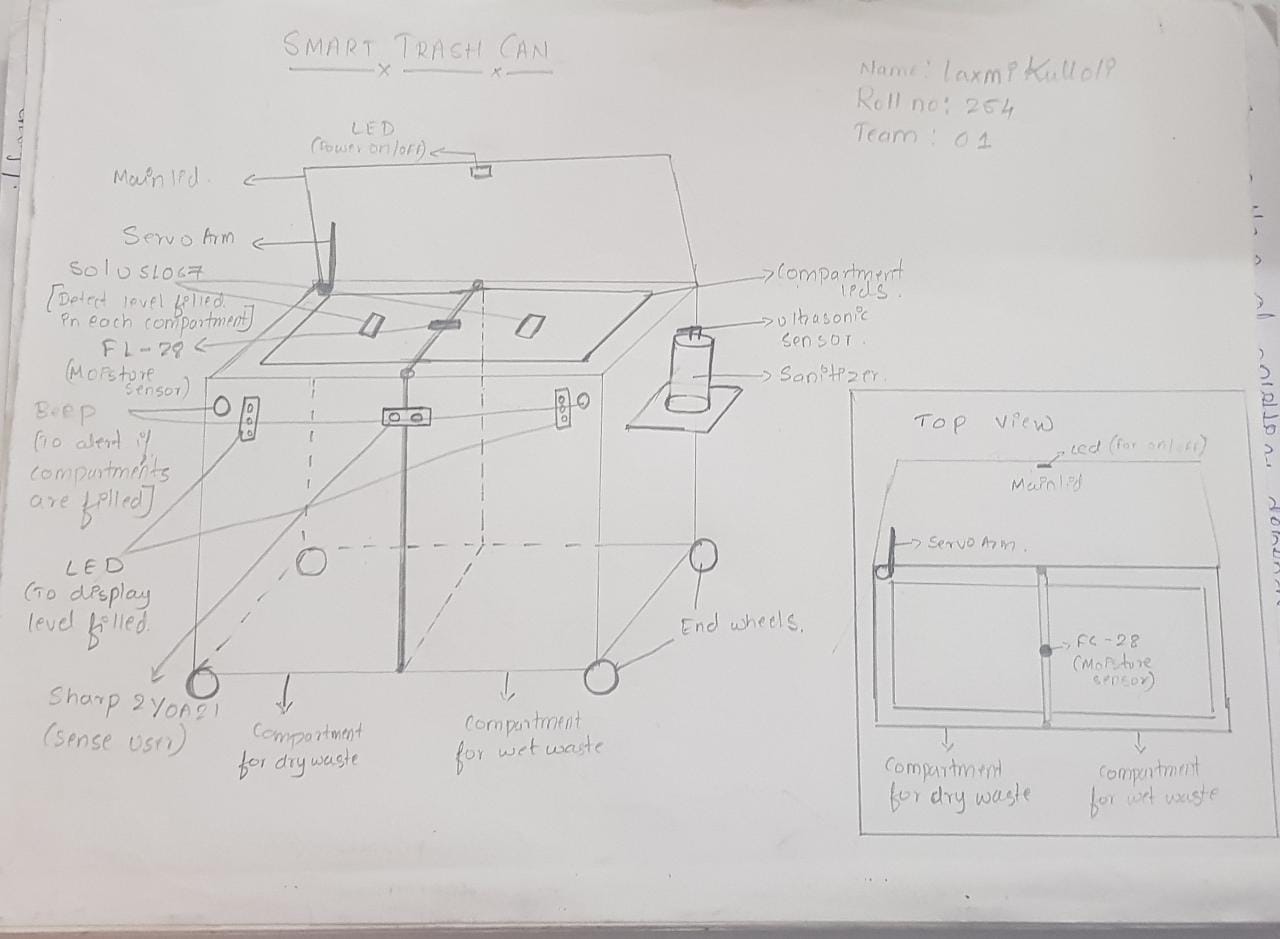 SMART TRASH CAN
Name: Laxmi Kulloli
Roll no: 264
Team: 01
LED
(Power on/off)
Main lid.
Servo Arm
Solu SLO67
[Detect level filled
in each compartment]
FL-28
(Moisture
sensor)
Beep
(To alert if
compartments
are filled]
LED
(To display
level filled.
Sharp 2Y0A21
(sense user)
Compartment
for dry waste
Compartment
for wet waste
Compartment
leds.
Ultrasonic
sensor.
Sanitizer.
End wheels.
TOP VIEW
Led (for on/off)
Main lid
Servo Arm.
FC-28
(Moisture
sensor)
Compartment
for dry waste
Compartment
for wet waste